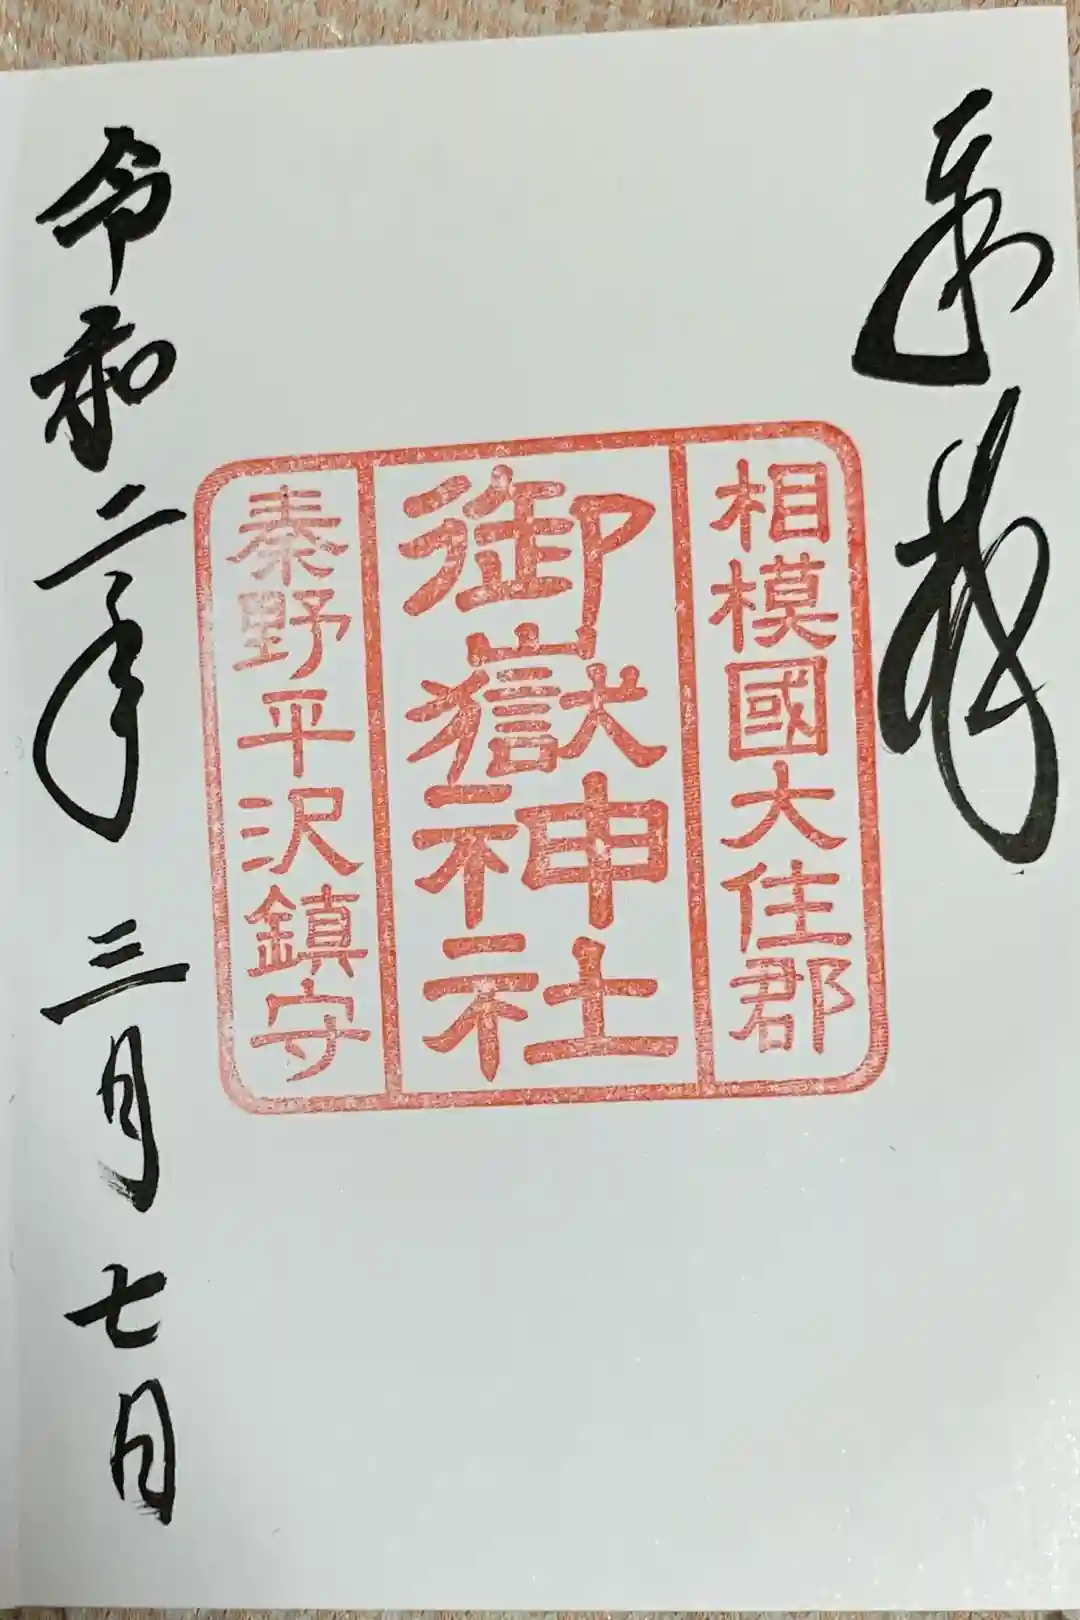 奉拝
相模國大住郡
御嶽神社
秦野平沢鎮守
令和二年三月七日